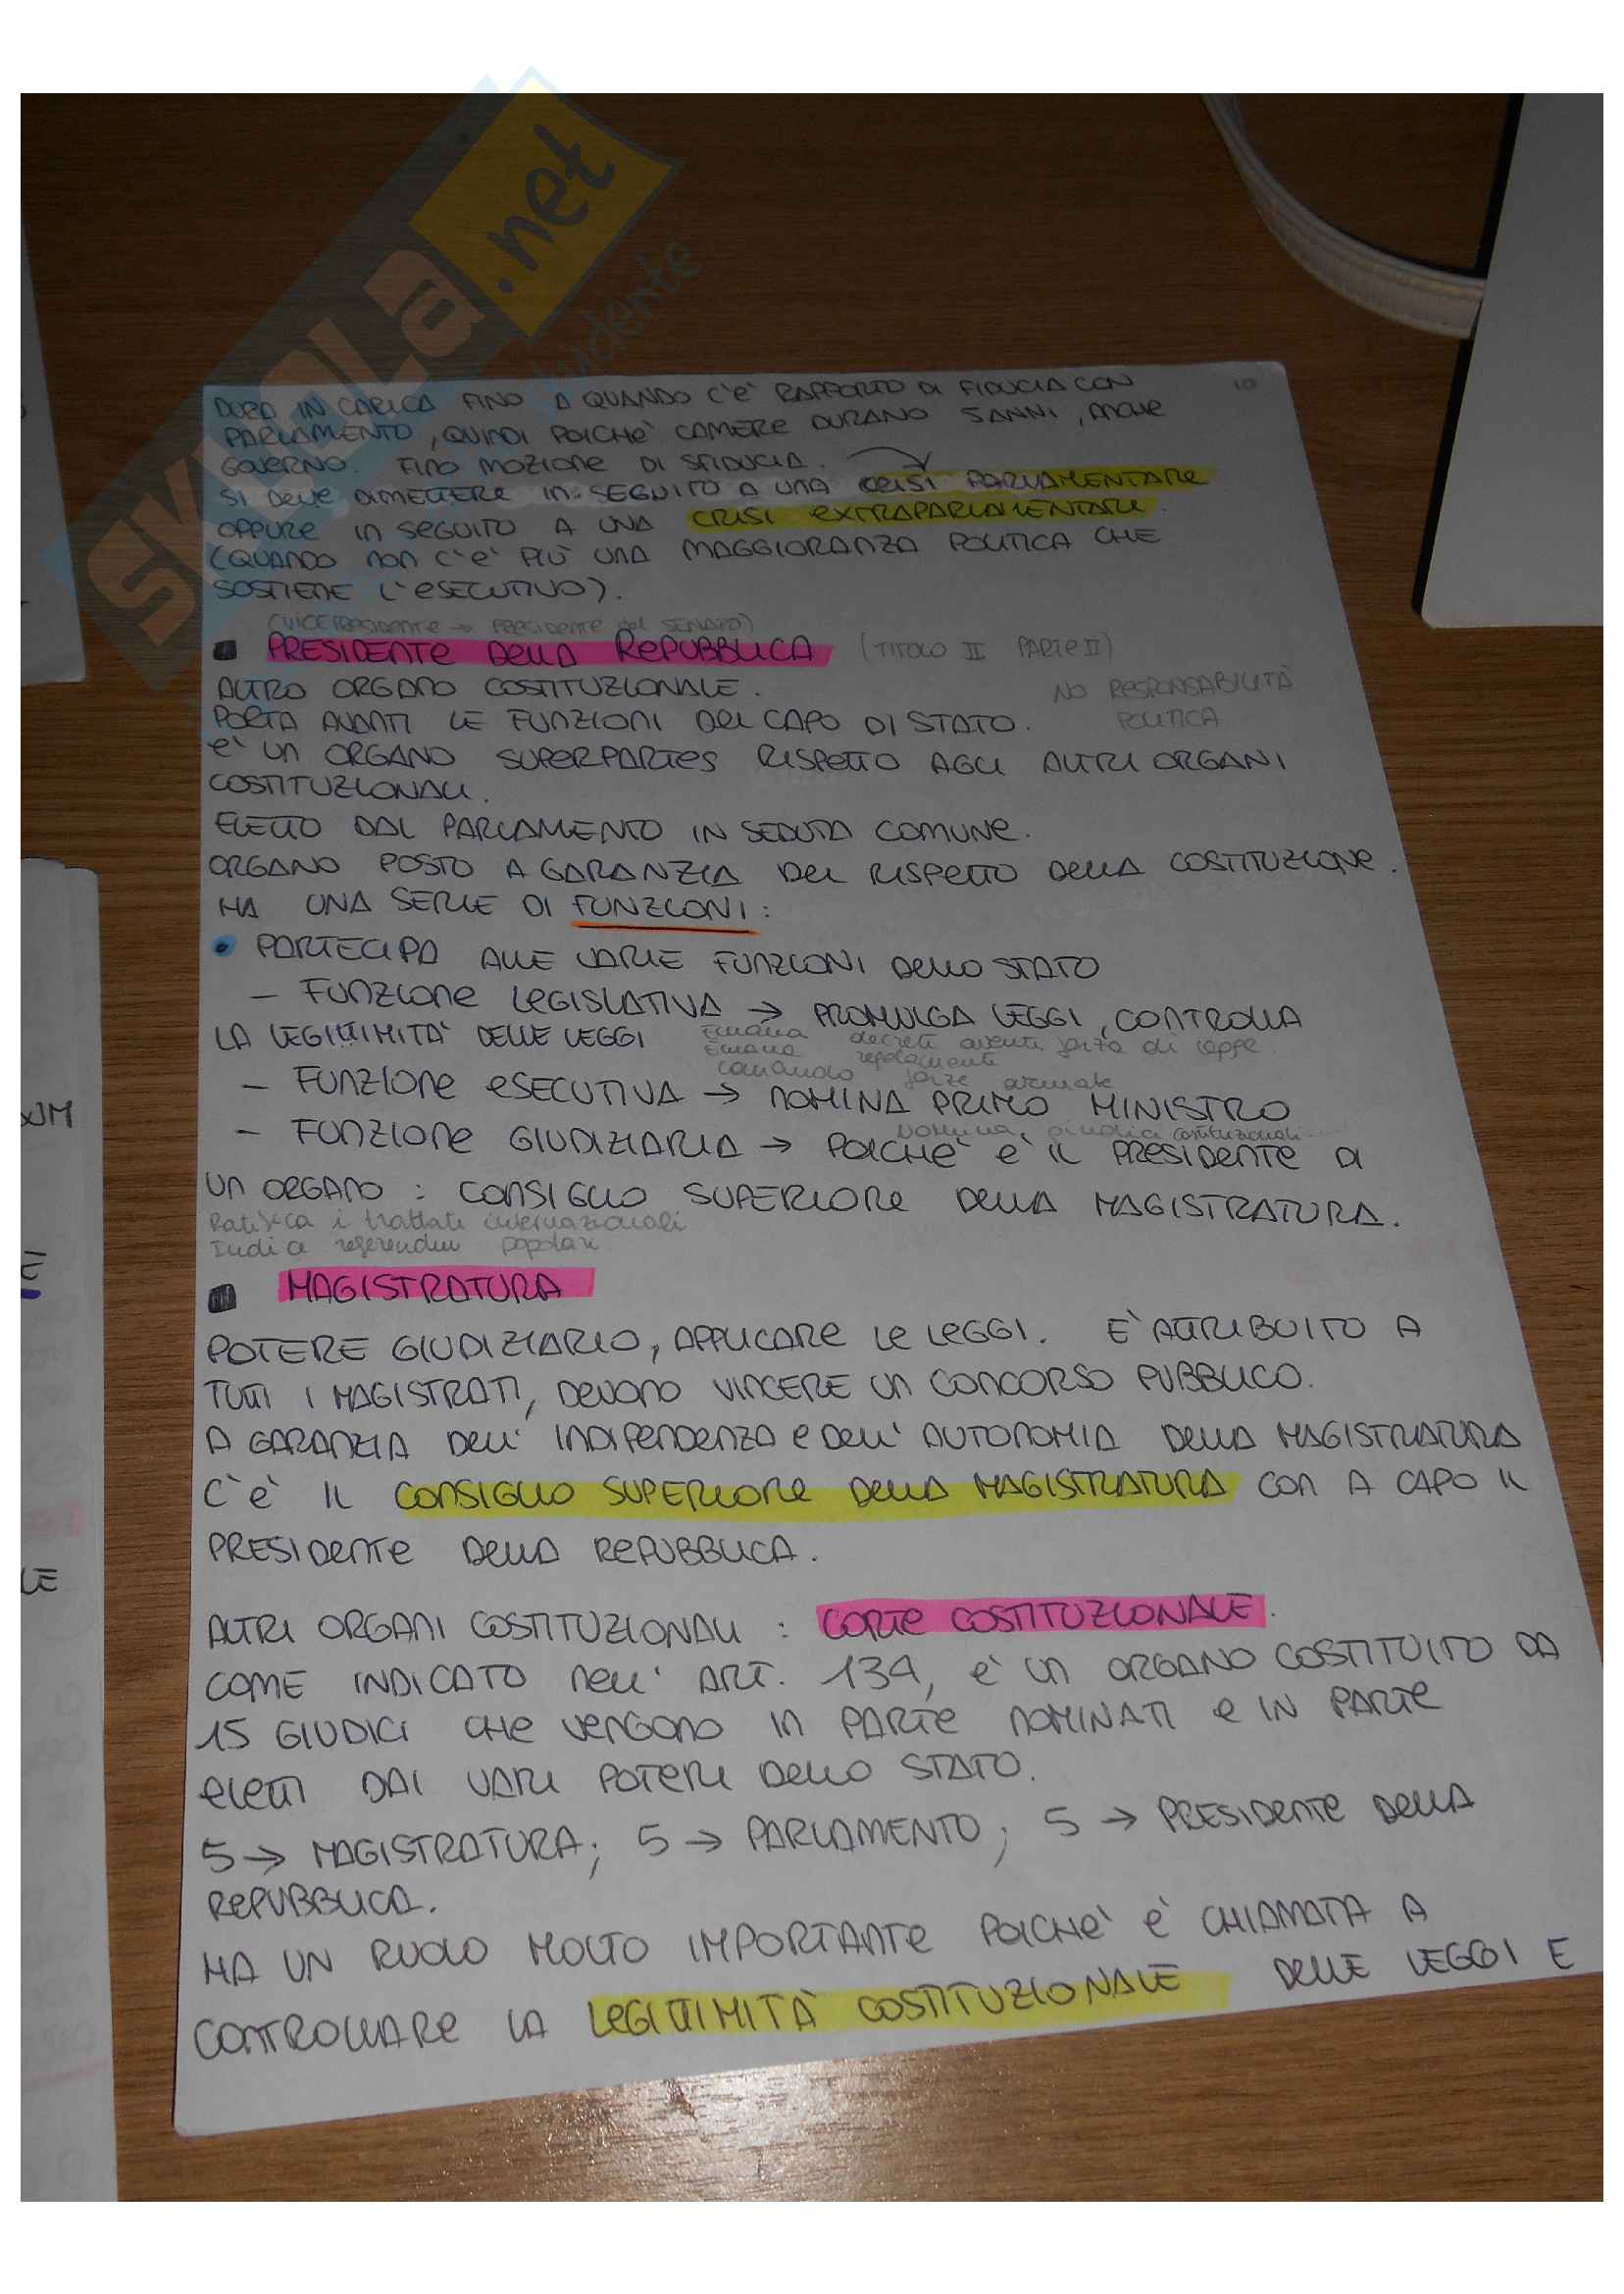 SKUOLA.net
10
DURA IN CARICA FINO A QUANDO C'E' RAPPORTO DI FIDUCIA CON
PARLAMENTO, QUINDI POICHE' CAMERE DURANO 5 ANNI, ANCHE
GOVERNO. FINO MOZIONE DI SFIDUCIA.
SI DEVE DIMETTERE IN SEGUITO A UNA CRISI PARLAMENTARE
OPPURE IN SEGUITO A UNA CRISI EXTRAPARLAMENTARE.
(QUANDO NON C'E' PIÙ UNA MAGGIORANZA POLITICA CHE
SOSTIENE L'ESECUTIVO).
(VICEPRESIDENTE → PRESIDENTE del SENATO)
PRESIDENTE DELLA REPUBBLICA (TITOLO II PARTE II)
ALTRO ORGANO COSTITUZIONALE. NO RESPONSABILITÀ
PORTA AVANTI LE FUNZIONI DEL CAPO DI STATO. POLITICA
E' UN ORGANO SUPERPARTES RISPETTO AGLI ALTRI ORGANI
COSTITUZIONALI.
ELETTO DAL PARLAMENTO IN SEDUTA COMUNE.
ORGANO POSTO A GARANZIA DEL RISPETTO DELLA COSTITUZIONE.
HA UNA SERIE DI FUNZIONI:
• PARTECIPA ALLE VARIE FUNZIONI DELLO STATO
– FUNZIONE LEGISLATIVA → PROMULGA LEGGI, CONTROLLA
LA LEGITTIMITA' DELLE LEGGI Emana decreti aventi forza di legge
Emana regolamenti
comando forze armate
– FUNZIONE ESECUTIVA → NOMINA PRIMO MINISTRO
Nomina giudici costituzionali
– FUNZIONE GIUDIZIARIA → POICHE' E' IL PRESIDENTE DI
UN ORGANO: CONSIGLIO SUPERIORE DELLA MAGISTRATURA.
Ratifica i trattati internazionali
Indice referendum popolari
MAGISTRATURA
POTERE GIUDIZIARIO, APPLICARE LE LEGGI. E' ATTRIBUITO A
TUTTI I MAGISTRATI, DEVONO VINCERE UN CONCORSO PUBBLICO.
A GARANZIA DELL' INDIPENDENZA E DELL' AUTONOMIA DELLA MAGISTRATURA
C'È IL CONSIGLIO SUPERIORE DELLA MAGISTRATURA CON A CAPO IL
PRESIDENTE DELLA REPUBBLICA.
ALTRI ORGANI COSTITUZIONALI: CORTE COSTITUZIONALE.
COME INDICATO NELL' ART. 134, E' UN ORGANO COSTITUITO DA
15 GIUDICI CHE VENGONO IN PARTE NOMINATI E IN PARTE
ELETTI DAI VARI POTERI DELLO STATO.
5 → MAGISTRATURA; 5 → PARLAMENTO; 5 → PRESIDENTE DELLA
REPUBBLICA.
HA UN RUOLO MOLTO IMPORTANTE POICHE' È CHIAMATA A
CONTROLLARE LA LEGITTIMITÀ COSTITUZIONALE DELLE LEGGI E